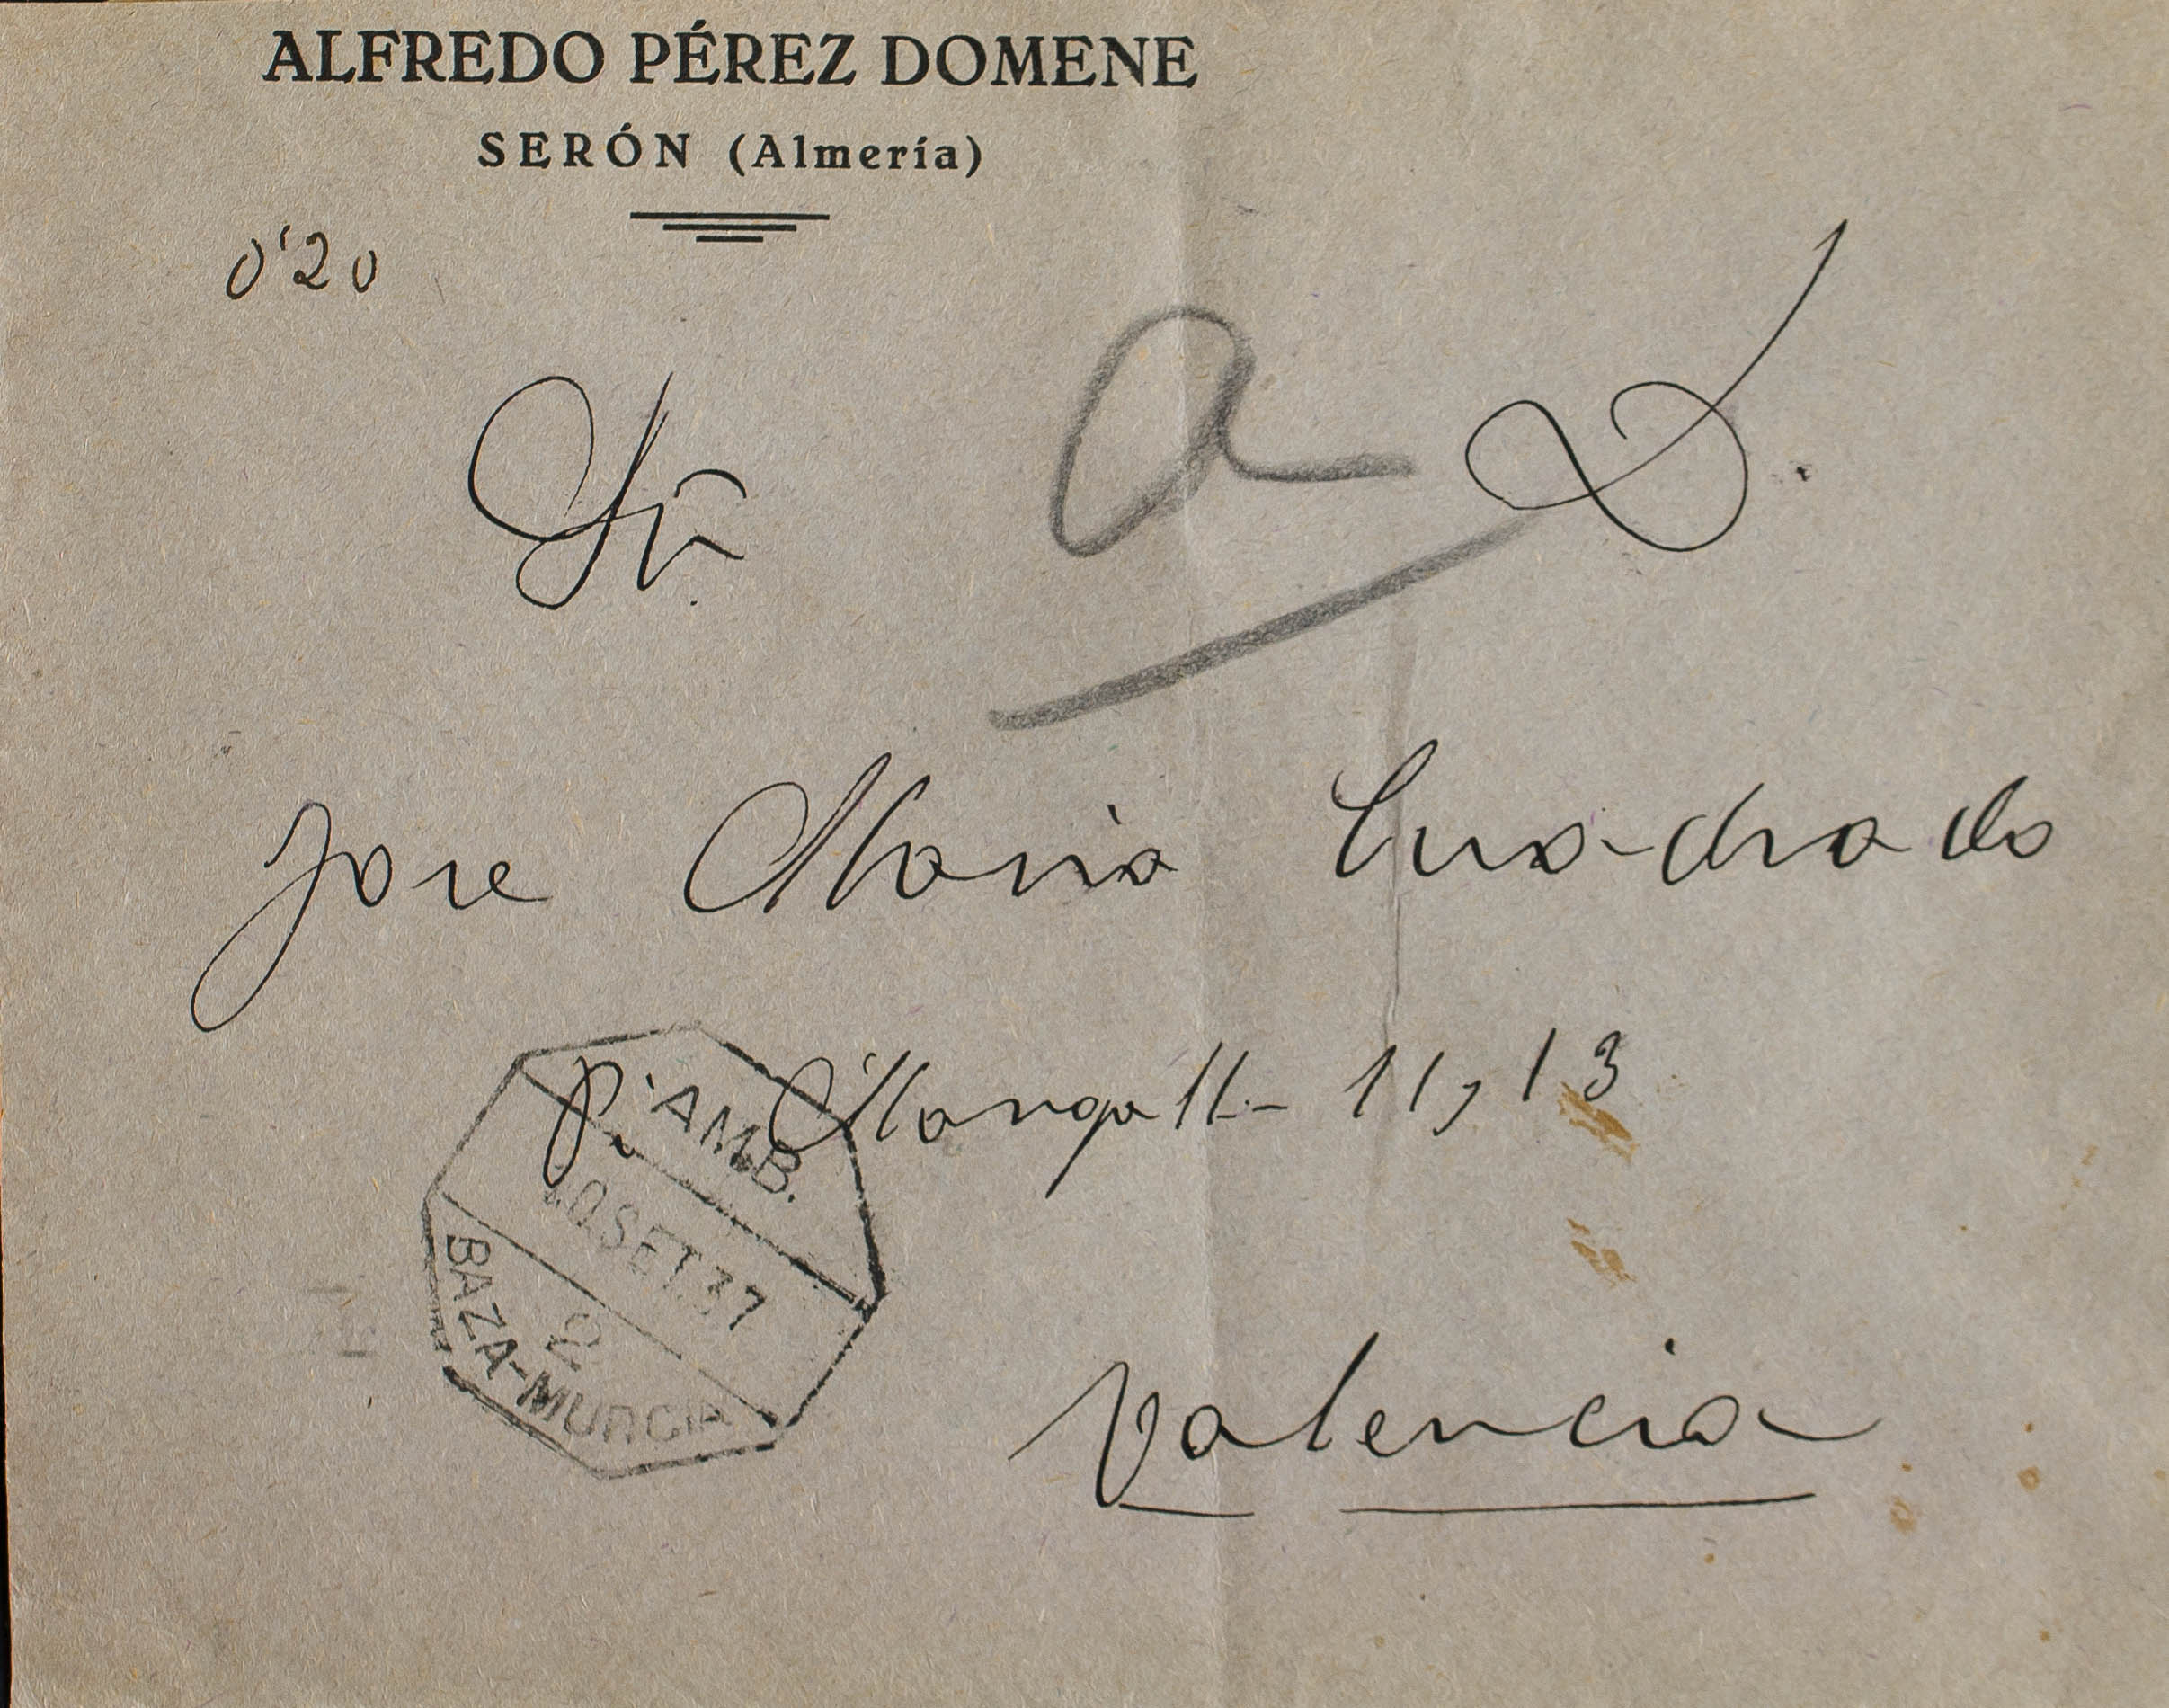 ALFREDO PÉREZ DOMENE
SERÓN (Almería)
0'20
Sr. D.
a
Jose Maria Cuadrado
P. Margall- 11, 13
AMB.
SET 37
2
BAZA-MURCIA
Valencia